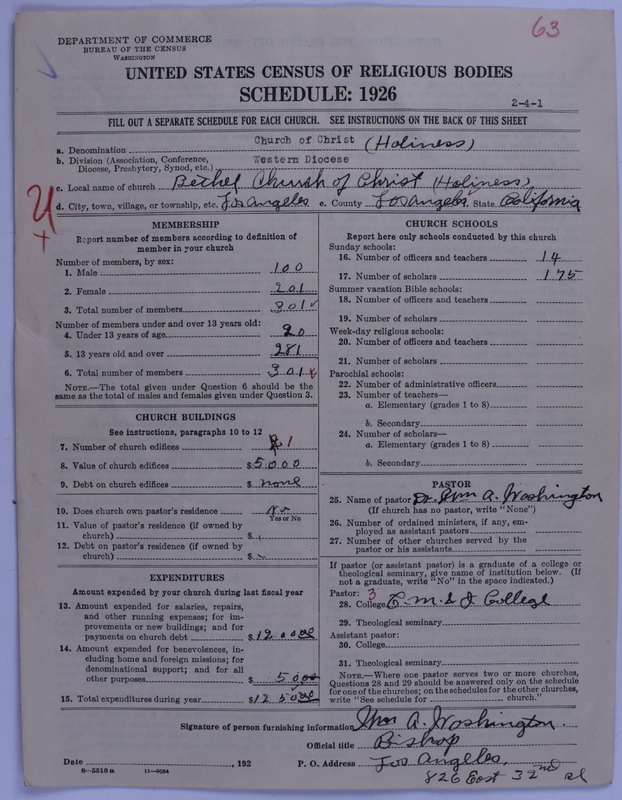 63
DEPARTMENT OF COMMERCE
BUREAU OF THE CENSUS
WASHINGTON
UNITED STATES CENSUS OF RELIGIOUS BODIES
SCHEDULE: 1926
2-4-1
FILL OUT A SEPARATE SCHEDULE FOR EACH CHURCH. SEE INSTRUCTIONS ON THE BACK OF THIS SHEET
a. Denomination Church of Christ (Holiness)
b. Division (Association, Conference, Diocese, Presbytery, Synod, etc.) Western Diocese
c. Local name of church Bethel Church of Christ (Holiness)
d. City, town, village, or township, etc. Los Angeles e. County Los Angeles State California
MEMBERSHIP
Report number of members according to definition of
member in your church
Number of members, by sex:
1. Male 100
2. Female 201
3. Total number of members 301
Number of members under and over 13 years old:
4. Under 13 years of age 20
5. 13 years old and over 281
6. Total number of members 301
NOTE.—The total given under Question 6 should be
same as the total of males and females given under Question 3.
CHURCH BUILDINGS
See instructions, paragraphs 10 to 12
7. Number of church edifices 1
8. Value of church edifices $5000
9. Debt on church edifices $ none
10. Does church own pastor's residence? No
Yes or No
11. Value of pastor's residence (if owned by
church) $
12. Debt on pastor's residence (if owned by
church) $
EXPENDITURES
Amount expended by your church during last fiscal year
13. Amount expended for salaries, repairs,
and other running expenses; for im-
provements or new buildings; and for
payments on church debt $1200
14. Amount expended for benevolences, in-
cluding home and foreign missions; for
denominational support; and for all
other purposes $ 50
15. Total expenditures during year $1250
CHURCH SCHOOLS
Report here only schools conducted by this church
Sunday schools:
16. Number of officers and teachers 14
17. Number of scholars 175
Summer vacation Bible schools:
18. Number of officers and teachers
19. Number of scholars
Week-day religious schools:
20. Number of officers and teachers
21. Number of scholars
Parochial schools:
22. Number of administrative officers
23. Number of teachers—
a. Elementary (grades 1 to 8)
b. Secondary
24. Number of scholars—
a. Elementary (grades 1 to 8)
b. Secondary
PASTOR
25. Name of pastor Wm A. Washington
(If church has no pastor, write "None")
26. Number of ordained ministers, if any, em-
ployed as assistant pastors
27. Number of other churches served by the
pastor or his assistants
If pastor (or assistant pastor) is a graduate of a college or
theological seminary, give name of institution below. (If
not a graduate, write "No" in the space indicated.)
Pastor: 3
28. College C. M. & I College
29. Theological seminary
Assistant pastor:
30. College
31. Theological seminary
NOTE.—Where one pastor serves two or more churches,
Questions 28 and 29 should be answered only on the schedule
for one of the churches; on the schedules for the other churches,
write "See schedule for church."
Signature of person furnishing information Wm A. Washington
Official title Bishop
Date , 192 P. O. Address Los Angeles,
8—5518 a 11—9054
826 East 32nd st